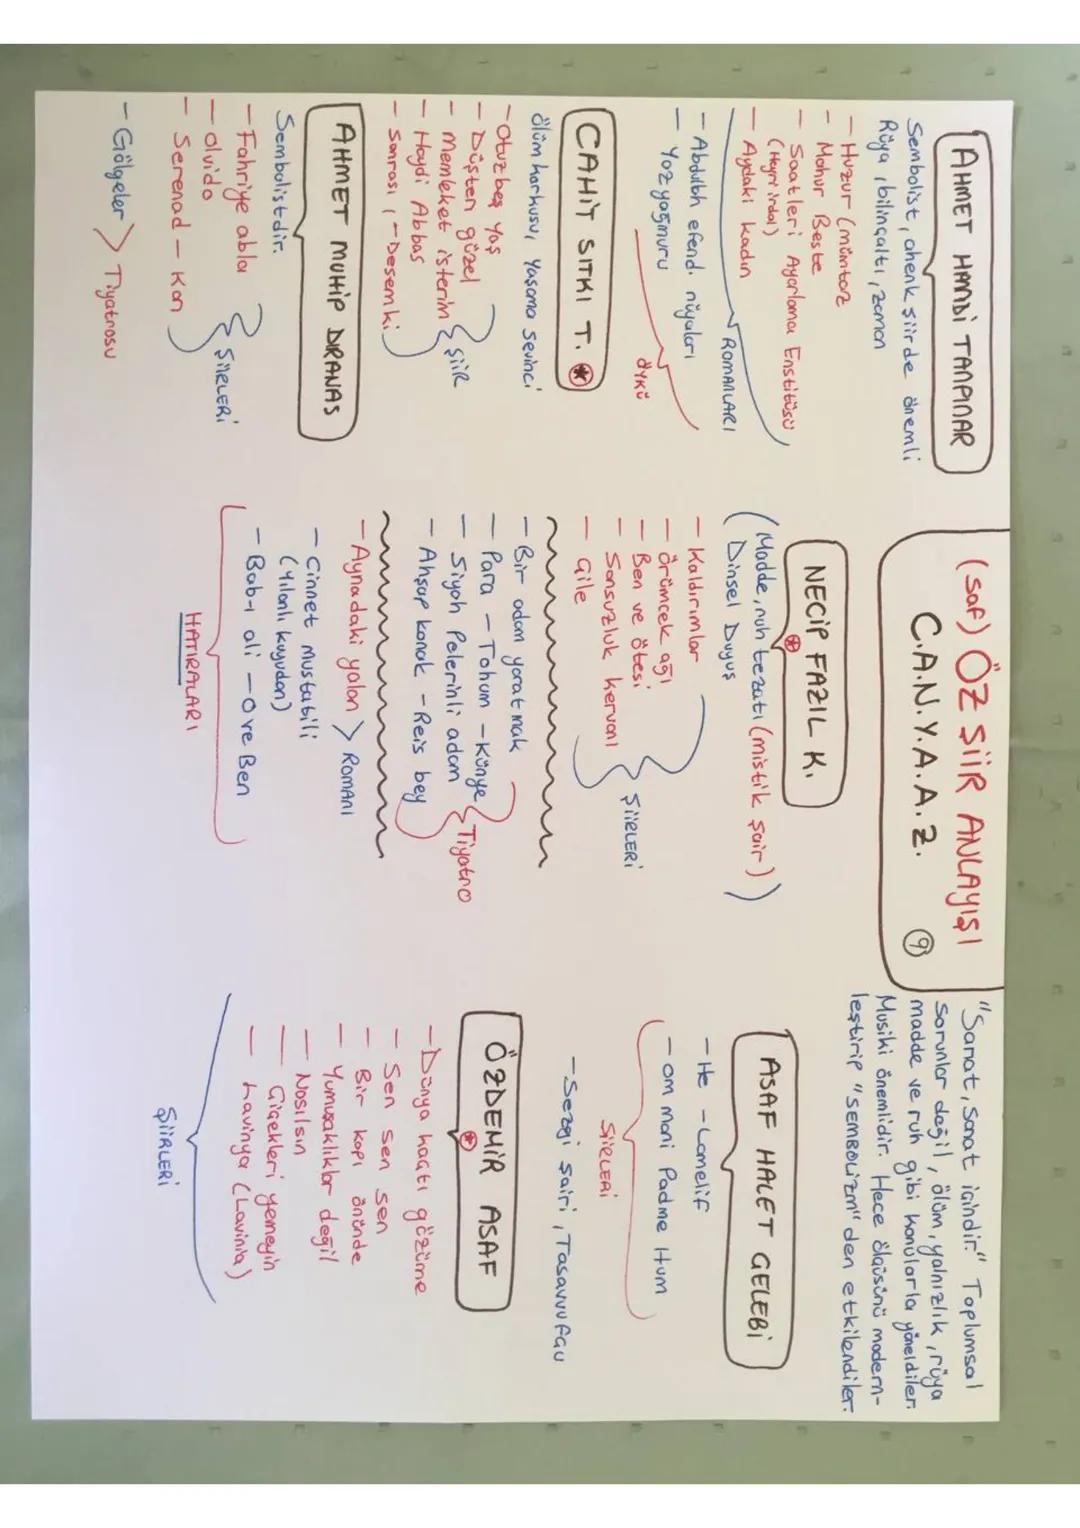 (saf) ÖZ ŞİİR ANLAYIŞI
C.A.N.Y.A.A.Z. 9
"Sanat, sanat içindir." Toplumsal
sorunlar değil, ölüm, yalnızlık, rüya
madde ve ruh gibi konularla yöneldiler.
Musiki önemlidir. Hece ölçüsünü modern-
leştirip "SEMBOLİZM" den etkilendiler.
AHMET HAMDİ TANPINAR
Sembolist, ahenk şiirde önemli
Rüya, bilinçaltı, zaman
- Huzur (mümtaz
- Mahur Beste
- Saatleri Ayarlama Enstitüsü
(Hayri irdal)
- Aydaki kadın
ROMANLARI
- Abdullh efend. rüyaları
- Yaz yağmuru
ÖYKÜ
CAHİT SITKI T.
Ölüm korkusu, yaşama sevinci
- Otuz beş yaş
- Düşten güzel
- Memleket isterim
- Haydi Abbas
- Sonrası, - Desem ki
ŞİİR
AHMET MUHİP DRANAS
Sembolistdir.
- Fahriye abla
- Olvido
- Serenad - Kar
ŞİİRLERİ
- Gölgeler > Tiyatrosu
NECİP FAZIL K.
(Madde, ruh tezatı (mistik şair))
Dinsel Duyuş
- Kaldırımlar
- Örümcek ağı
- Ben ve ötesi
- Sonsuzluk kervanı
- Çile
ŞİİRLERİ
- Bir adam yaratmak
- Para - Tohum - Künye
- Siyah Pelerinli adam
- Ahşap konak - Reis bey
Tiyatro
- Aynadaki yalan > ROMANI
- Cinnet mustatili
(Yılanlı kuyudan)
- Bab-ı ali - O ve Ben
HATIRALARI
ASAF HALET ÇELEBİ
- He - Lamelif
- om mani Padme Hum
ŞİİRLERİ
- Sezgi şairi, Tasavvufçu
ÖZDEMİR ASAF
- Dünya kaçtı gözüme
- Sen sen sen
- Bir kapı önünde
- Yumuşaklıklar değil
- Nasılsın
- Çiçekleri yemeyin
- Lavinya (Lavinia)
ŞİİRLERİ